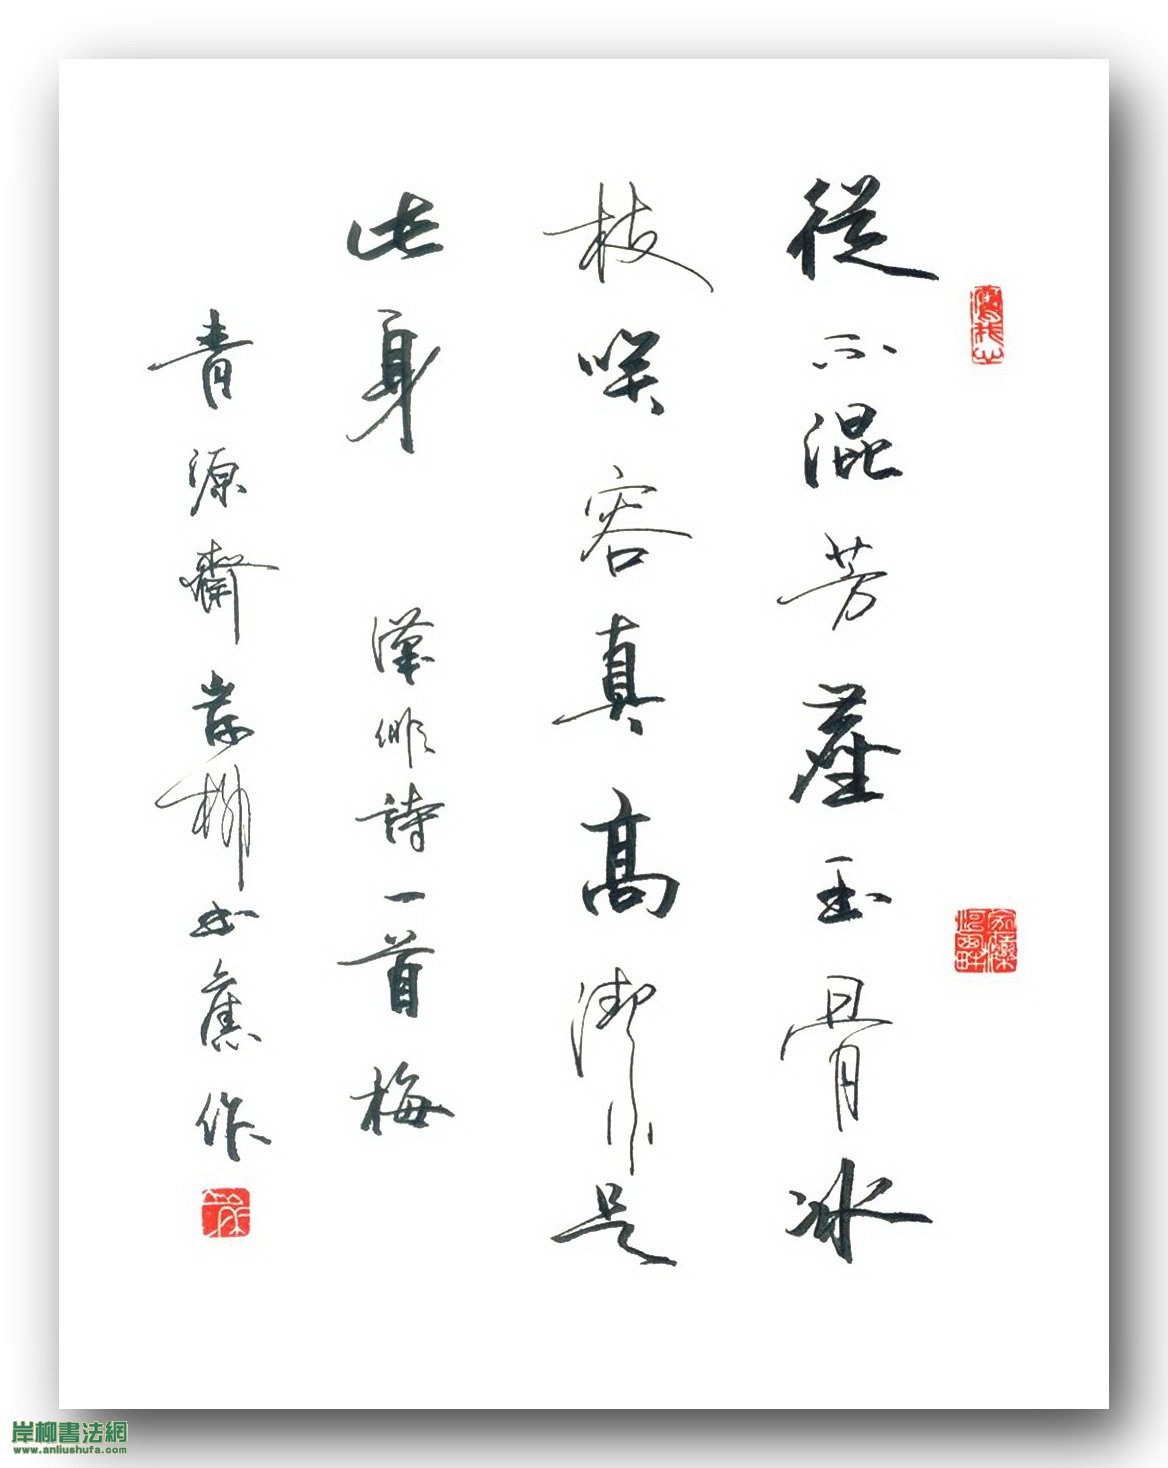 從不混芳塵玉骨冰
枝咲容真高潔是
此身 漢俳詩一首梅
青源齋岸柳書舊作
岸柳書法網
www.anliushufa.com